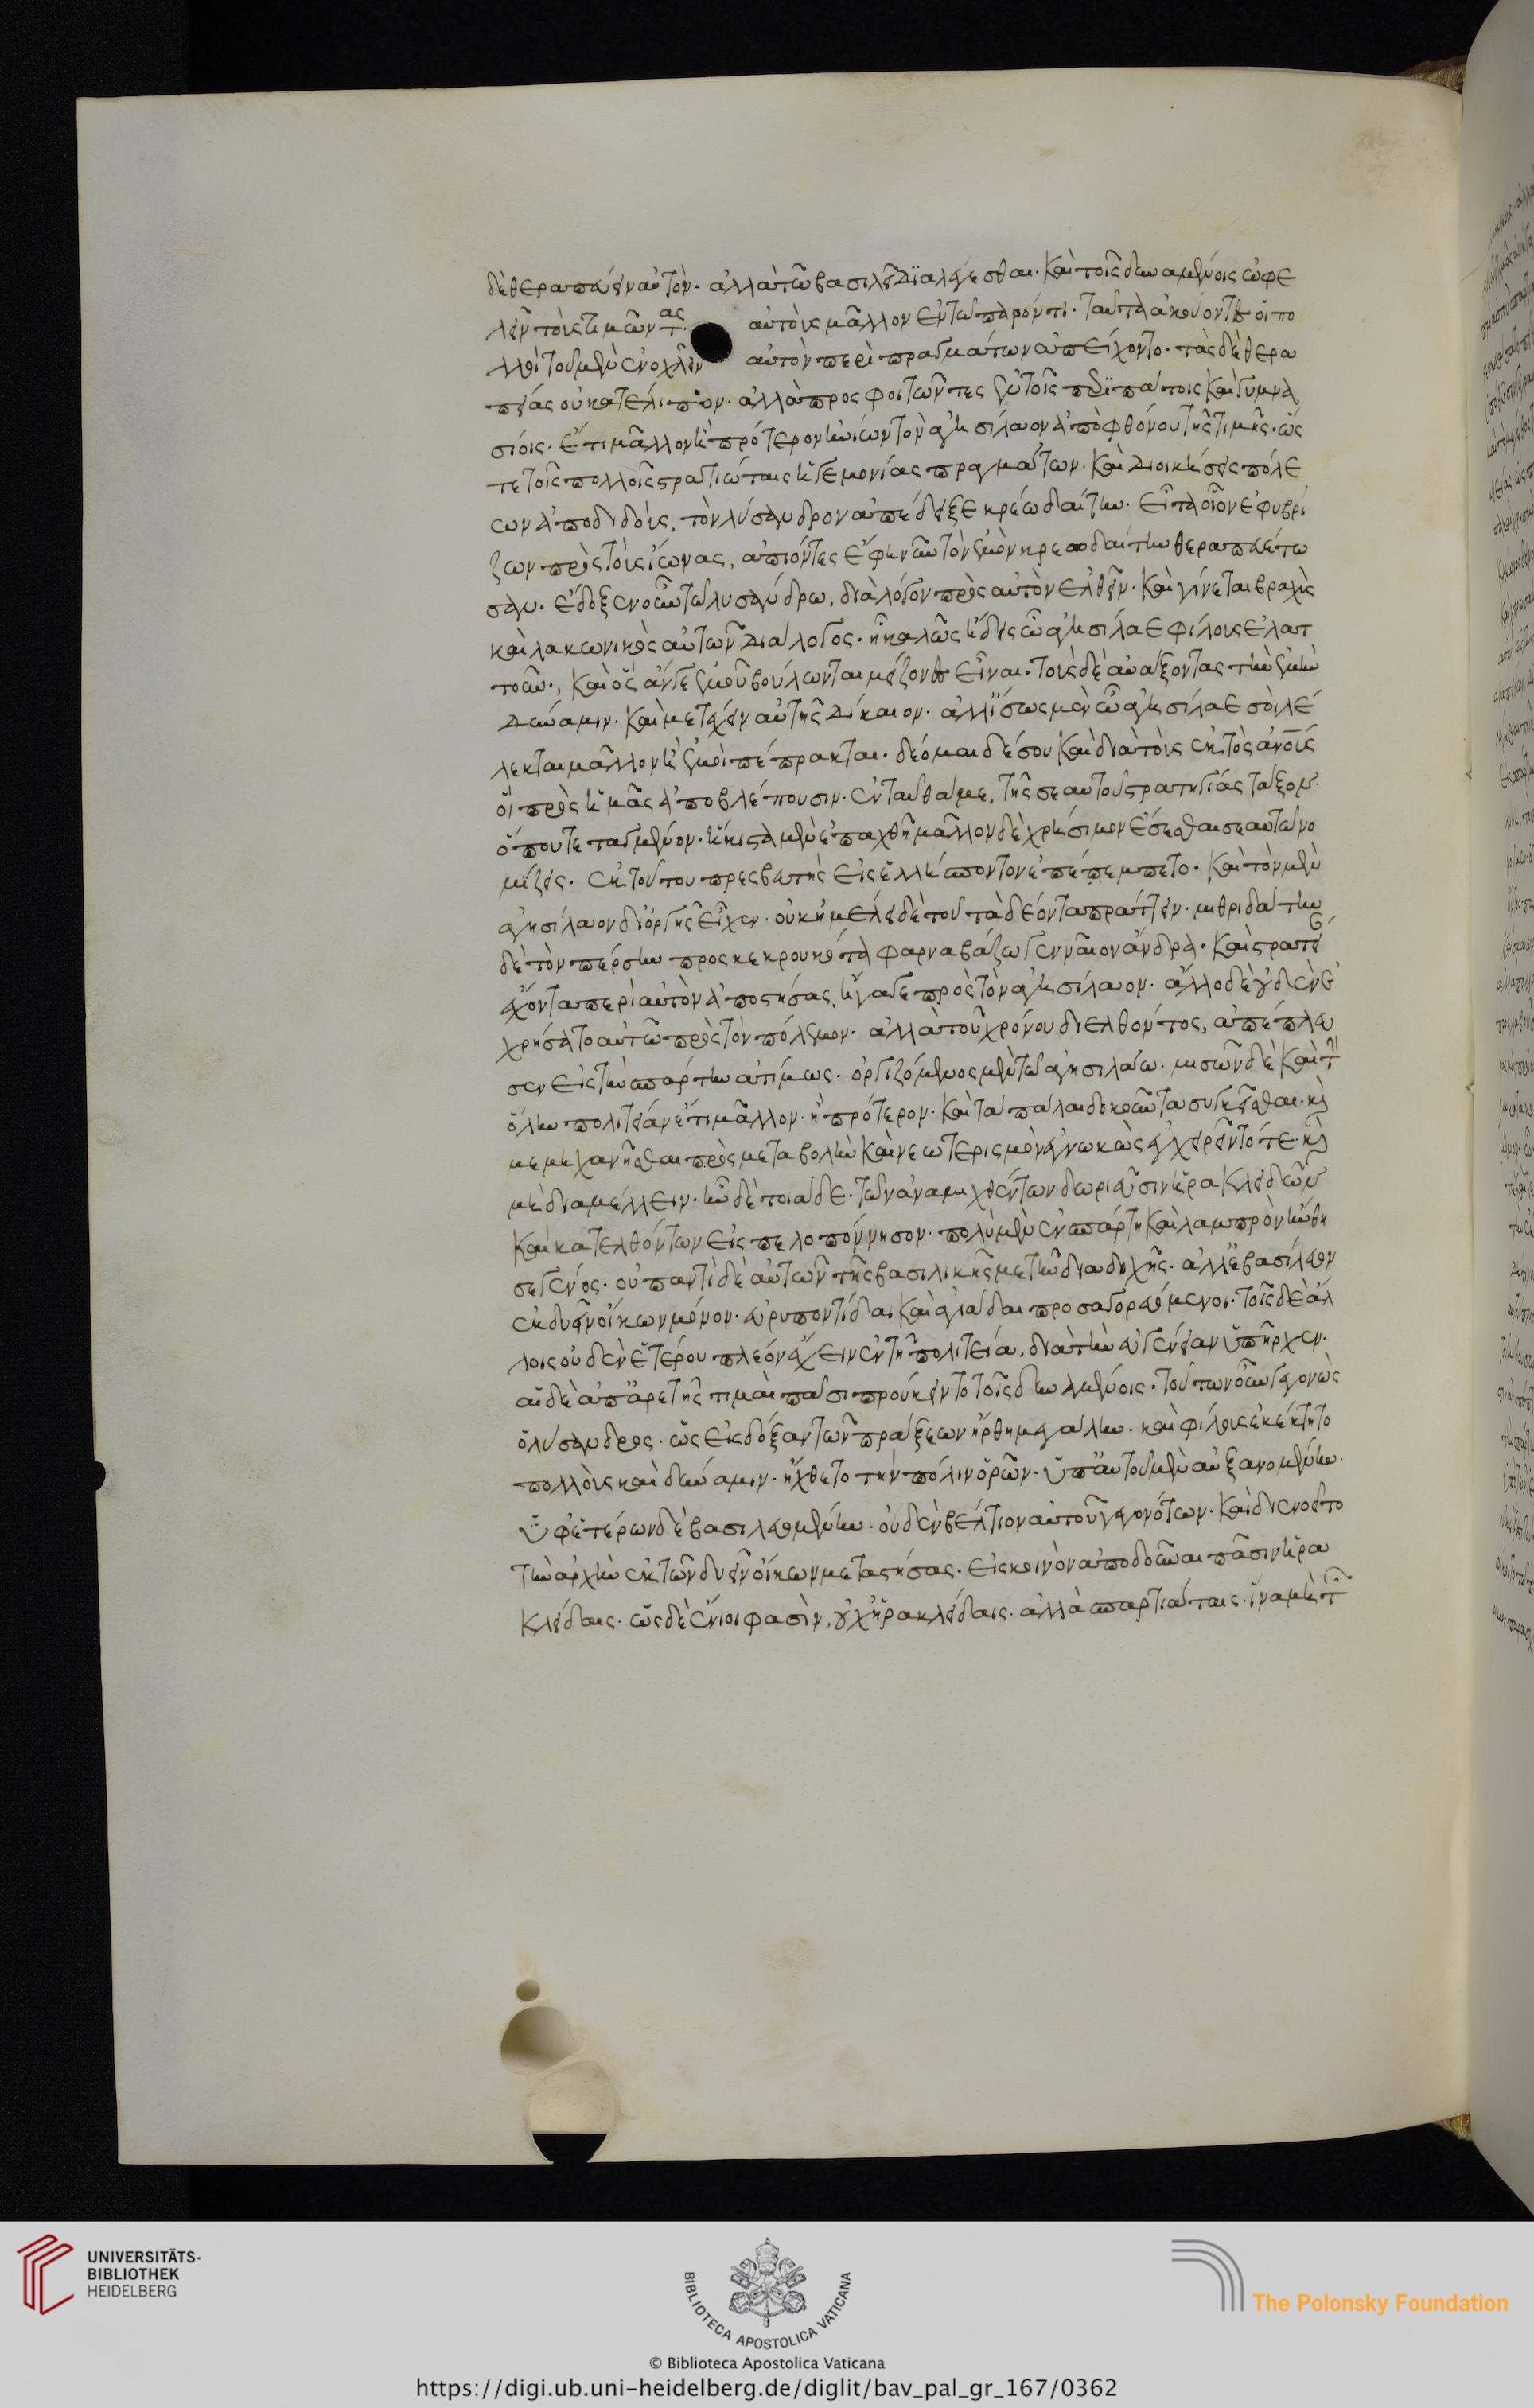 δὲ θεραπεύειν αὐτὸν. ἀλλὰ τῶ βασιλεῖ διαλέγεσθαι. καὶ τοῖς δυναμένοις ὠφε
λεῖν τοὺς τιμῶντας αὐτοὺς μᾶλλον ἐν τῶ παρόντι. ταῦτα ἀκούοντες οἱ πο
λλοὶ τοῦ μὲν ἐνοχλεῖν αὐτὸν περὶ πραγμάτων ἀπείχοντο. τὰς δὲ θερα
πείας οὐ κατέλιπον. ἀλλὰ προσφοιτῶντες ἐν τοῖς περιπάτοις καὶ γυμνα
σίοις. ἔτι μᾶλλον ἢ πρότερον ἠνίων τὸν ἀγησίλαον ἀπὸ φθόνου τῆς τιμῆς. ὥς
τε τοῖς πολλοῖς στρατιώταις ἡγεμονίας πραγμάτων. καὶ διοικήσεις πόλε
ων ἀποδιδοὺς, τὸν λύσανδρον ἀπέδειξε κρεωδαίτην. εἶτα οἷον ἐφυβρί
ζων πρὸς τοὺς ἴωνας, ἀπιόντες ἔφη νῦν τὸν ἐμὸν κρεωδαίτην θεραπευέτω
σαν. ἔδοξεν οὖν τῶ λυσάνδρω, διὰ λόγον πρὸς αὐτὸν ἐλθεῖν. καὶ γίνεται βραχὺς
καὶ λακωνικὸς αὐτῶν διάλογος. ἦ καλῶς ἤδεις ὦ ἀγησίλαε φίλους ἐλατ
τοῦν., καὶ ὃς ἄν γε ἐμοῦ βούλωνται μείζονες εἶναι. τοὺς δὲ αὔξοντας τὴν ἐμὴν
δύναμιν. καὶ μετέχειν αὐτῆς δίκαιον. ἀλλ' ἴσως μὲν ὦ ἀγησίλαε σοὶ λέ
λεκται μᾶλλον ἢ ἐμοὶ πέπρακται. δέομαι δέ σου καὶ διὰ τοὺς ἐκτὸς ἀνους
οἳ πρὸς ἡμᾶς ἀποβλέπουσιν. ἐνταῦθα με, τῆς σεαυτοῦ στρατηγίας τάξον.
ὅπου τεταγμένον. ἥκιστα μὲν ἐπαχθῆ μᾶλλον δὲ χρήσιμον ἔσεσθαι σεαυτῶ νο
μίζεις. ἐκ τούτου πρεσβευτὴς εἰς ἑλλήσποντον ἐπέπεμπετο. καὶ τὸν μὲν
ἀγησίλαον δι' ὀργῆς εἶχεν. οὐκ ἠμέλει δὲ τοῦ τὰ δέοντα πράττειν. μιθριδάτην
δὲ τὸν πέρσην προσκεκρουκότα φαρναβάζω γενναῖον ἄνδρα. καὶ στρατιὰν
ἔχοντα περὶ αὐτὸν ἀποστήσας, ἤγαγε πρὸς τὸν ἀγησίλαον. ἄλλο δὲ οὐδὲν ἐ
χρήσατο αὐτῶ πρὸς τὸν πόλεμον. ἀλλὰ τοῦ χρόνου διελθόντος, ἀπέπλευ
σεν εἰς τὴν σπάρτην ἀτίμως. ὀργιζόμενος μὲν τῶ ἀγησιλάω. μισῶν δὲ καὶ τὴν
ὅλην πολιτείαν ἔτι μᾶλλον. ἢ πρότερον. καὶ τὰ πάλαι δοκοῦντα συγκεῖσθαι. καὶ
μεμηχανῆσθαι πρὸς μεταβολὴν καὶ νεωτερισμὸν ἐγνωκὼς ἐγχειρεῖν τότε. καὶ
μὴ διαμέλλειν. ἦν δὲ τοιάδε. τῶν ἀναμιχθέντων δωριεῦσιν ἡρακλειδῶν
καὶ κατελθόντων εἰς πελοπόννησον. πολὺ μὲν ἐν σπάρτη καὶ λαμπρὸν ἤνθη
σε γένος. οὐ παντὶ δὲ αὐτῶν τῆς βασιλικῆς μετῆν διαδοχῆς. ἀλλ' ἐβασίλευον
ἐκ δυεῖν οἴκων μόνον. εὐρυποντίδαι καὶ ἀγιάδαι προσαγορευόμενοι. τοῖς δὲ ἄλ
λοις οὐδὲν ἑτέρου πλέον ἔχειν ἐν τῆ πολιτεία, διὰ τὴν εὐγένειαν ὑπῆρχεν.
αἱ δὲ ἀπ' ἀρετῆς τιμαὶ πᾶσι προύκειντο τοῖς δυναμένοις. τούτων οὖν γεγονὼς
ὁ λύσανδρος. ὡς ἐκ δόξαν τῶν πράξεων ἤρθη μεγάλην. καὶ φίλους ἐκέκτητο
πολλοὺς καὶ δύναμιν. ἤχθετο τὴν πόλιν ὁρῶν. ὑπ' αὐτοῦ μὲν αὐξανομένην.
ὑφ' ἑτέρων δὲ βασιλευομένην. οὐδὲν βέλτιον αὐτοῦ γεγονότων. καὶ διενοεῖτο
τὴν ἀρχὴν ἐκ τῶν δυεῖν οἴκων μεταστήσας. εἰς κοινὸν ἀποδοῦναι πᾶσιν ἡρα
κλείδαις. ὡς δὲ ἔνιοι φασὶν, οὐχ ἡρακλείδαις. ἀλλὰ σπαρτιάταις. ἵνα μὴ τῶν
UNIVERSITÄTS-
BIBLIOTHEK
HEIDELBERG
BIBLIOTECA APOSTOLICA VATICANA
The Polonsky Foundation
© Biblioteca Apostolica Vaticana
https://digi.ub.uni-heidelberg.de/diglit/bav_pal_gr_167/0362